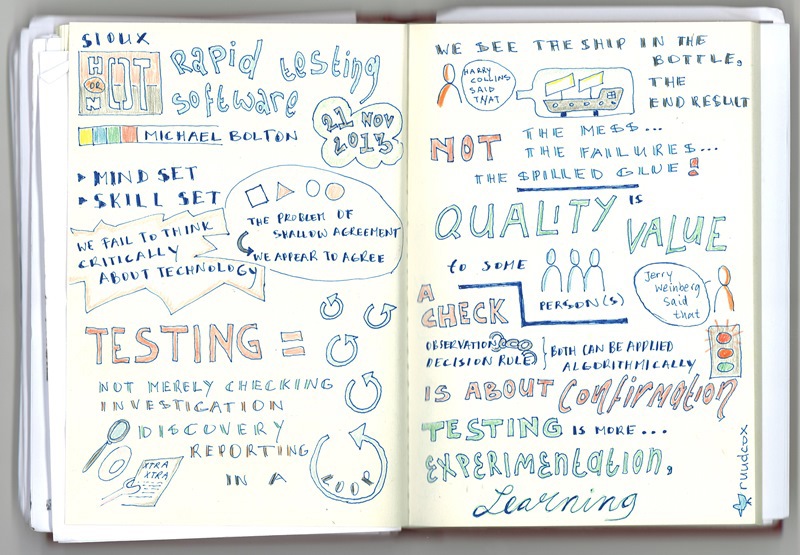 SIOUX
H
OR
N
OT
Rapid testing
software
MICHAEL BOLTON
21 NOV
2013
MIND SET
SKILL SET
WE FAIL TO THINK
CRITICALLY
ABOUT TECHNOLOGY
THE PROBLEM OF
SHALLOW AGREEMENT
WE APPEAR TO AGREE
TESTING =
NOT MERELY CHECKING
INVESTIGATION
DISCOVERY
REPORTING
XTRA
XTRA
IN A
LOOP
WE SEE THE SHIP IN THE
BOTTLE,
THE
END RESULT
HARRY
COLLINS
SAID
THAT
NOT THE MESS...
THE FAILURES...
THE SPILLED GLUE!
QUALITY IS
VALUE
to SOME
PERSON(S)
Jerry
Weinberg
said
that
A
CHECK
OBSERVATION
DECISION RULE
} BOTH CAN BE APPLIED
ALGORITHMICALLY
IS ABOUT Confirmation
TESTING IS MORE...
EXPERIMENtatION,
Learning
ruudcox